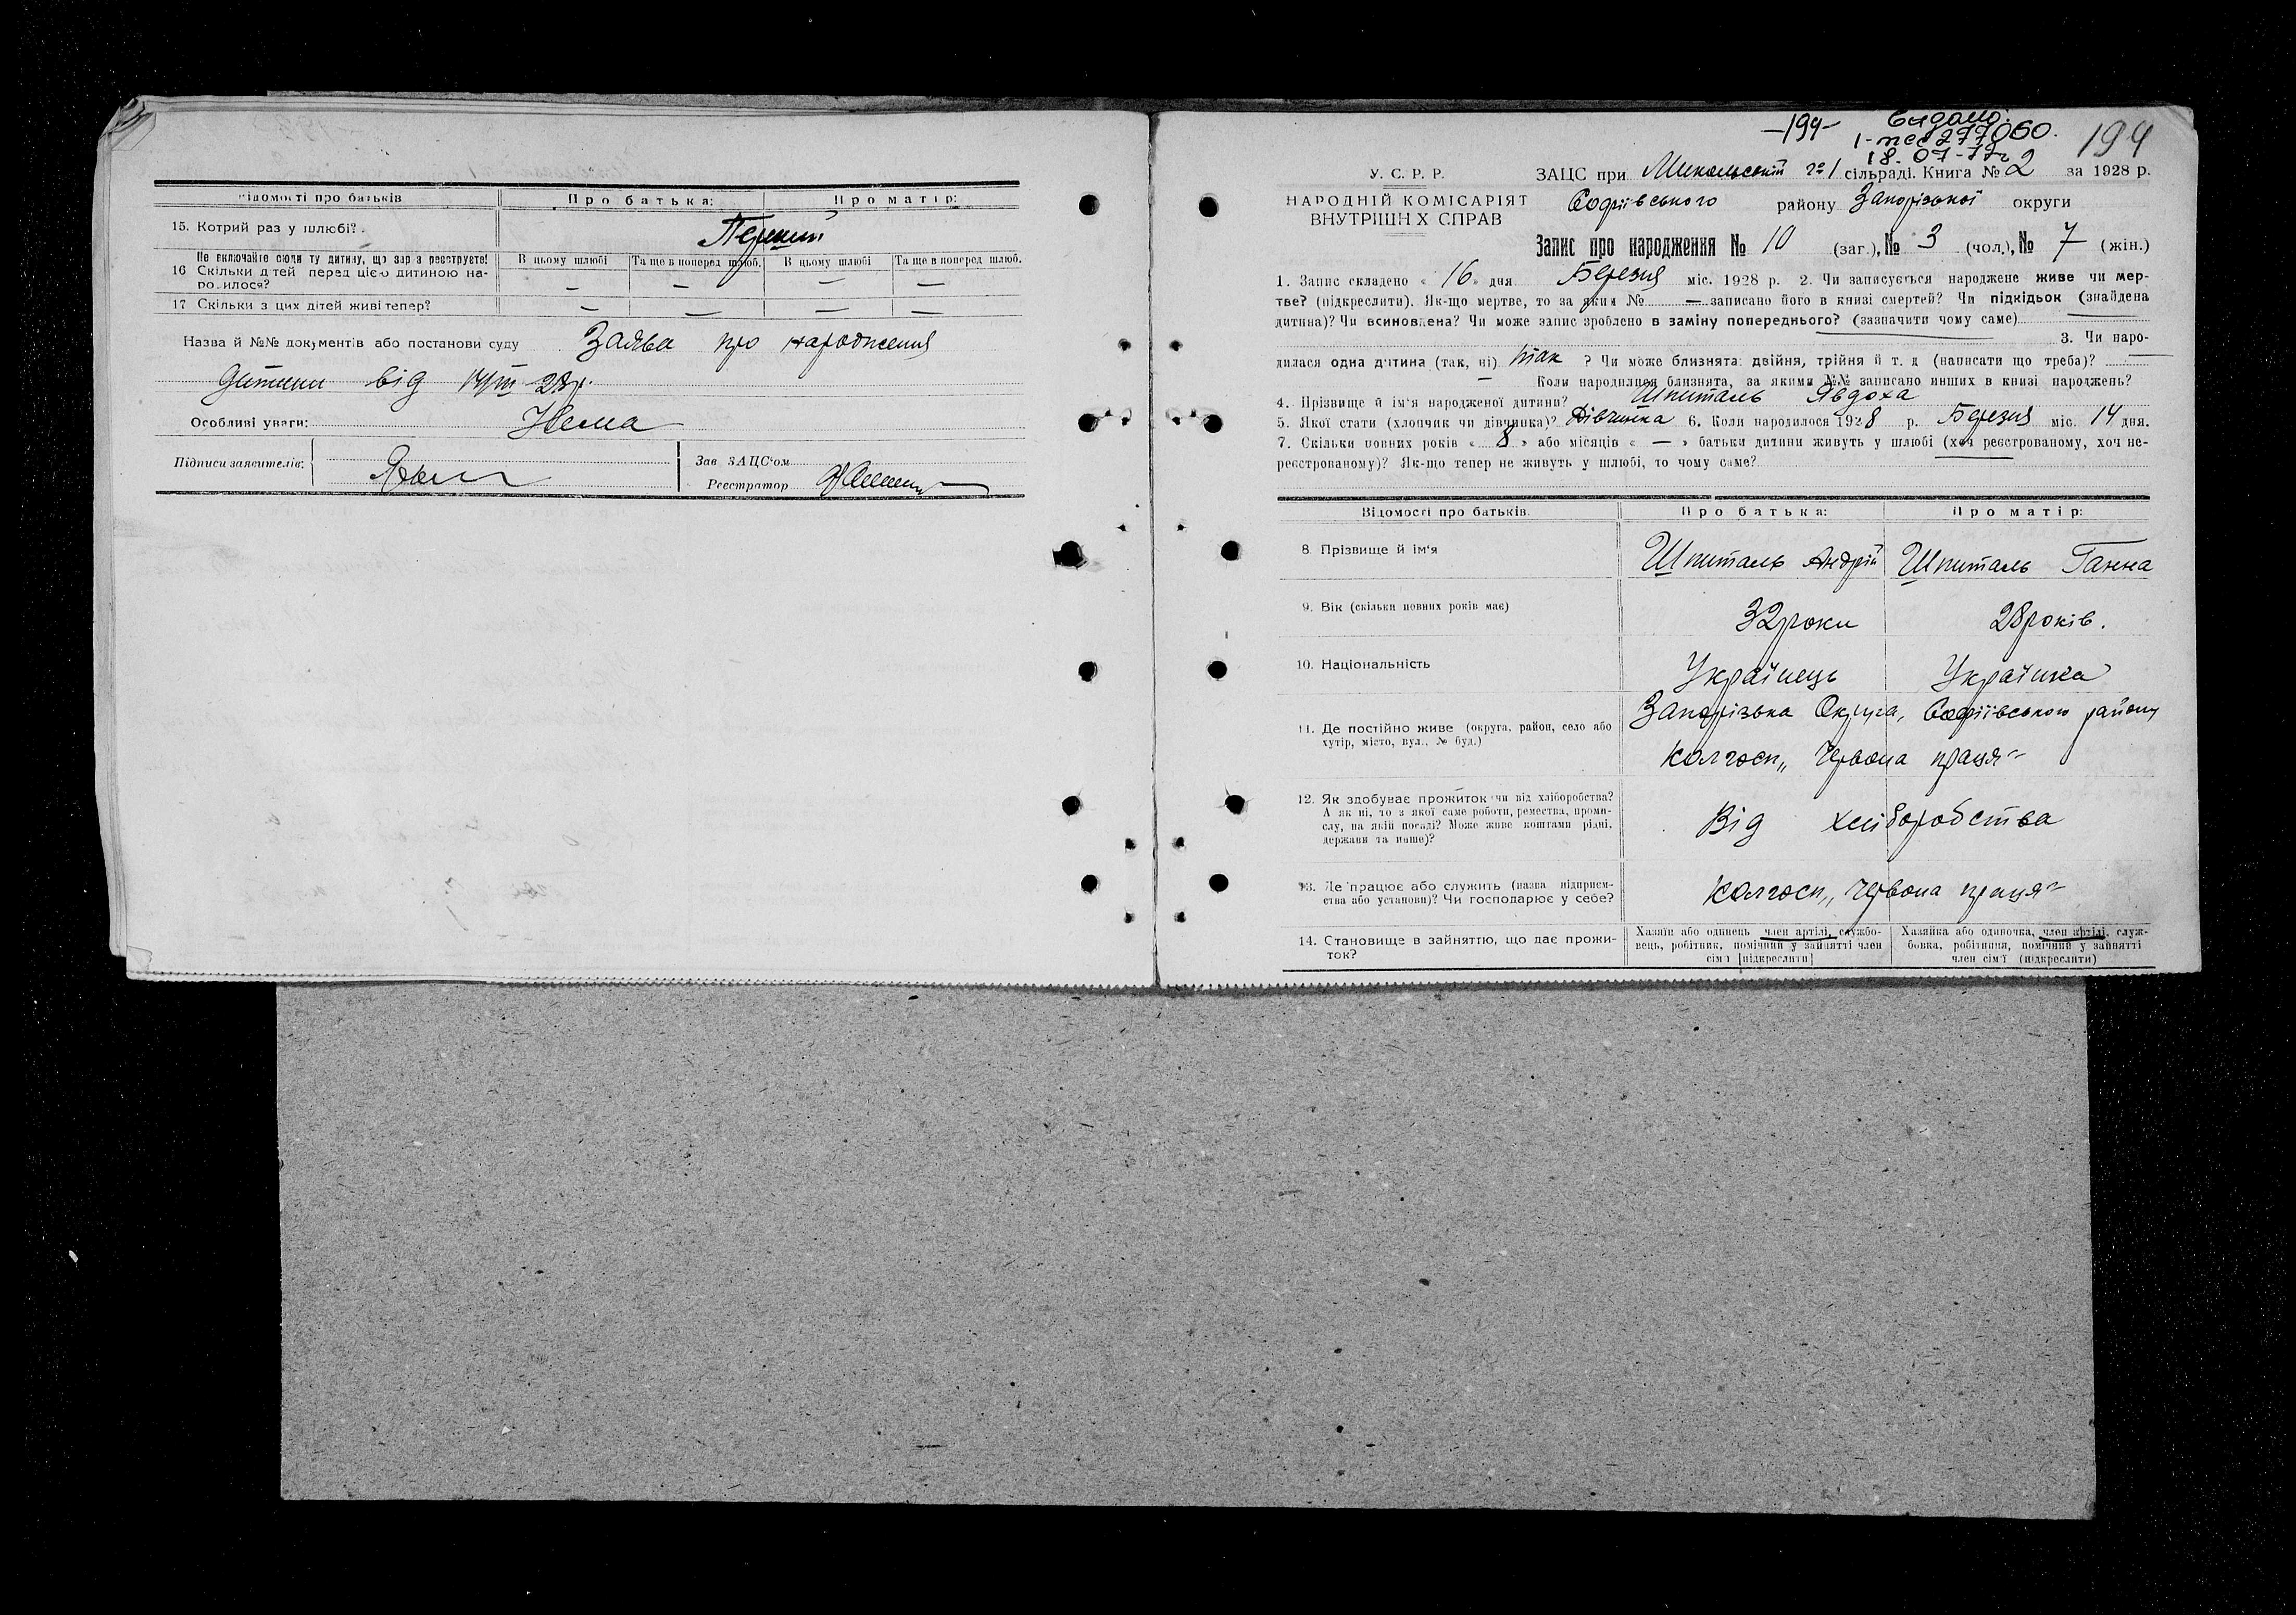 Відомості про батьків
Про батька:
Про матір:
15. Котрий раз у шлюбі?
Перший
Не включайте сюди ту дитину, що зараз реєструєте!
16 Скільки дітей перед цією дитиною на-
родилося?
В цьому шлюбі
Та ще в поперед. шлюб.
В цьому шлюбі
Та ще в поперед шлюб.
— — — —
17 Скільки з цих дітей живі тепер?
— — — —
Назва й №№ документів або постанови суду Заява про народження
дитини від 14/III-28р.
Особливі уваги: Нема
Підписи заявителів:
Зав ЗАЦС'ом
Реєстратор
-194- Видано:
277060.
18.07-77г
194
У. С. Р. Р.
НАРОДНІЙ КОМІСАРІЯТ
ВНУТРІШНІХ СПРАВ
ЗАЦС при №1 сільраді. Книга № 2 за 1928 р.
Софіївського району Запорізької округи
Запис про народження № 10 (заг.), № 3 (чол.), № 7 (жін.)
1. Запис складено « 16 » дня Березня міс. 1928 р. 2. Чи записується народжене живе чи мер-
тве? (підкреслити). Як-що мертве, то за яким № — записано його в книзі смертей? Чи підкідьок (знайдена
дитина)? Чи всиновлена? Чи може запис зроблено в заміну попереднього? (зазначити чому саме)
3. Чи наро-
дилася одна дитина (так, ні) так ? Чи може близнята: двійня, трійня й т. д (написати що треба)? —
— Коли народилися близнята, за якими №№ записано инших в книзі народжень?
4. Прізвище й ім'я народженої дитини? Шпиталь Явдоха
5. Якої стати (хлопчик чи дівчинка)? Дівчинка 6. Коли народилося 1928 р. Березня міс. 14 дня.
7. Скільки повних років « 8 » або місяців « — » батьки дитини живуть у шлюбі (хоч реєстрованому, хоч не-
реєстрованому)? Як-що тепер не живуть у шлюбі, то чому саме?
Відомості про батьків.
Про батька:
Про матір:
8. Прізвище й ім'я
Шпиталь Андрій
Шпиталь Ганна
9. Вік (скільки повних років має)
32 роки
28 років.
10. Національність
Українець
Українка
11. Де постійно живе (округа, район, село або
хутір, місто, вул., № буд.)
Запорізька Округа, Софіївського району
Колгосп „Червона праця"
12. Як здобуває прожиток чи від хліборобства?
А як ні, то з якої саме роботи, ремества, проми-
слу, на якій посаді? Може живе коштами рідні,
держави та инше)?
Від хліборобства
13. Де працює або служить (назва підприєм-
ства або установи)? Чи господарює у себе?
Колгосп „Червона праця"
14. Становище в зайняттю, що дає прожи-
ток?
Хазяїн або одинець член артілі, службо-
вець, робітник, помічний у зайнятті член
сім'ї [підкреслити]
Хазяйка або одиночка, член артілі, служ-
бовка, робітниця, помічний у зайнятті
член сім'ї (підкреслити)